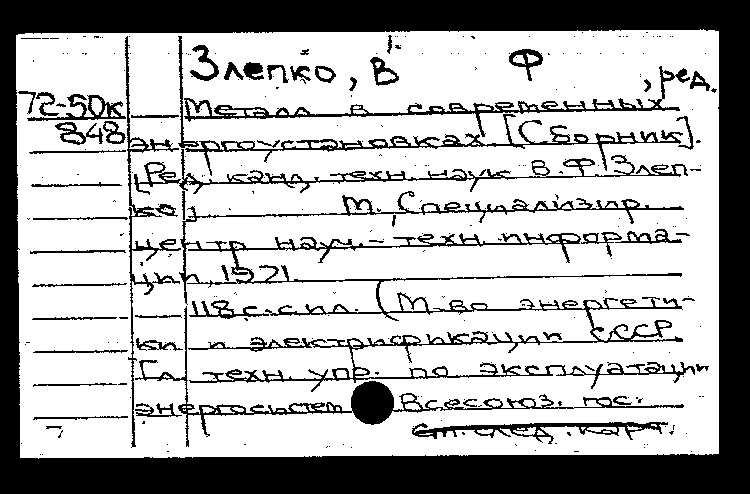 Злепко, В. Ф , ред.
72-50к Металл в современных
848 энергоустановках [Сборник].
[Ред. канд. техн. наук В.Ф. Злеп-
ко] М., Специализир.
центр науч.-техн. информа-
ции, 1971
118 с. с ил. (М-во энергети-
ки и электрификации СССР.
Гл. техн. упр. по эксплуатации
энергосистем Всесоюз. гос.
7 см. след. карт.